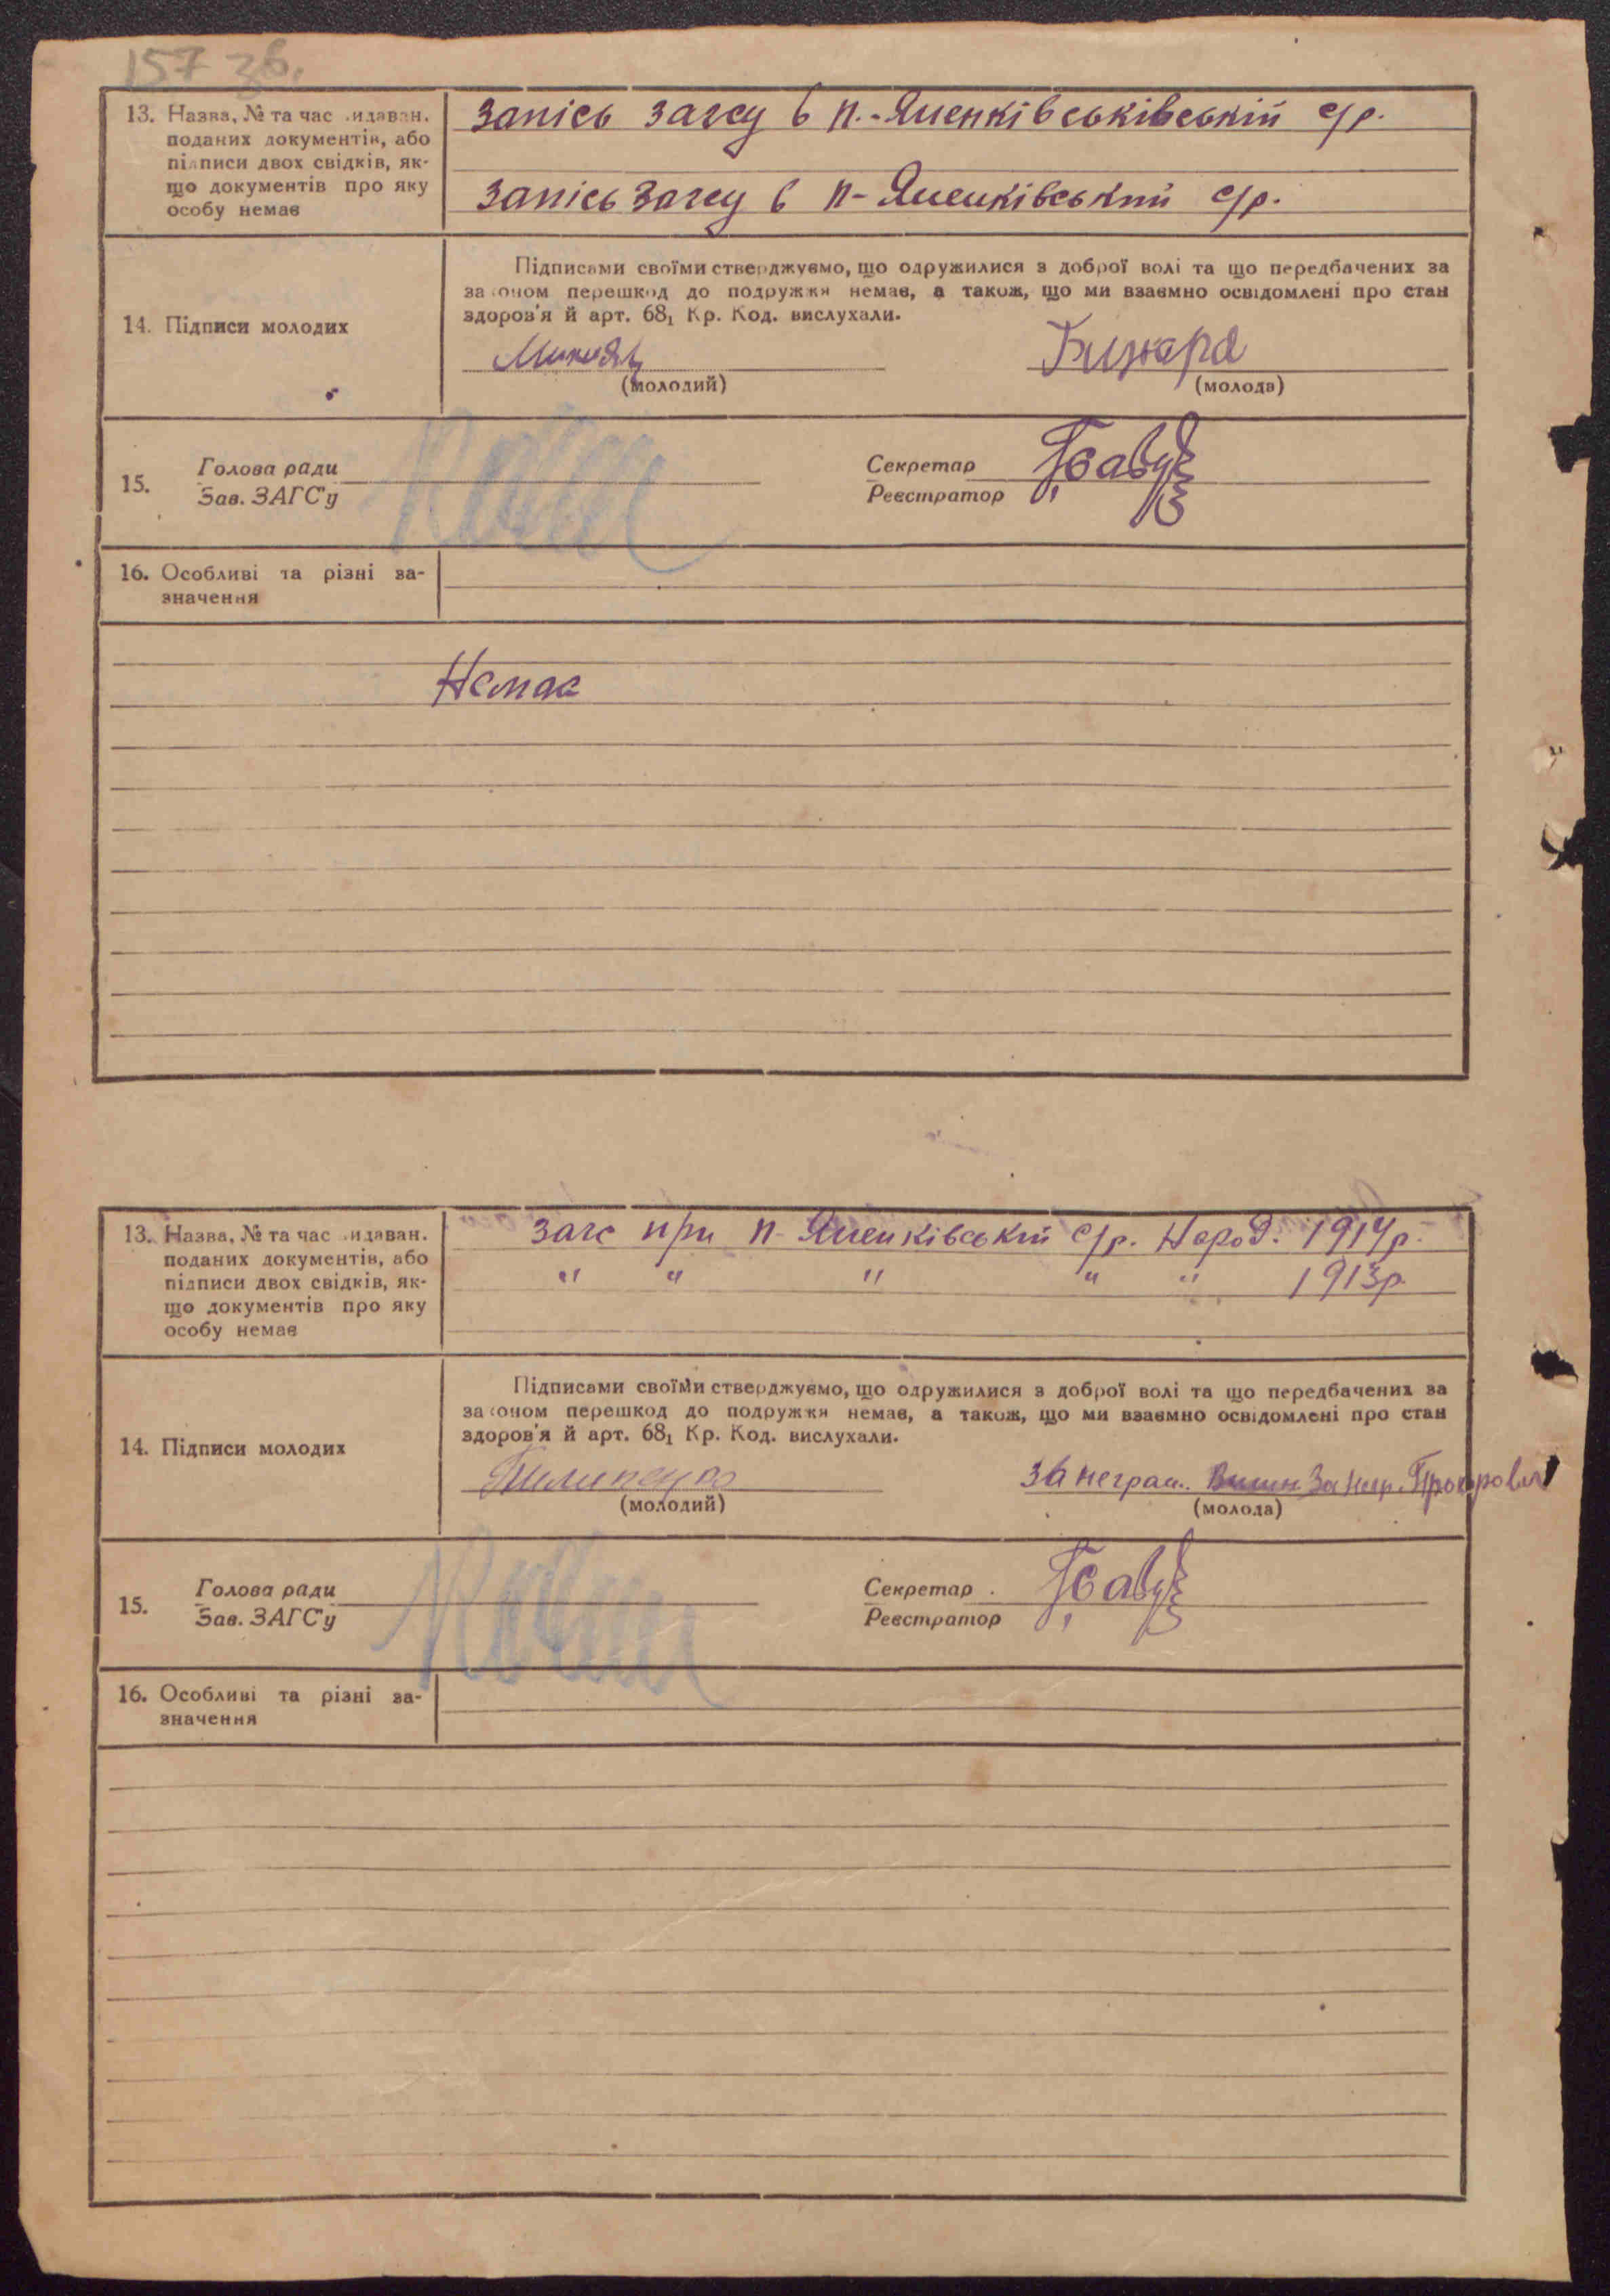 157 зв.
13. Назва, № та час видаван.
поданих документів, або
підписи двох свідків, як-
що документів про яку
особу немає
запісь загсу в п.-Яценківськівській с/р.
запісь загсу в п-Яценківський с/р.
14. Підписи молодих
Підписами своїми стверджуємо, що одружилися з доброї волі та що передбачених за
законом перешкод до подружжя немає, а також, що ми взаємно освідомлені про стан
здоров'я й арт. 68₁ Кр. Код. вислухали.
(молодий) (молода)
15. Голова ради
Зав. ЗАГС'у
Секретар
Реєстратор
16. Особливі та різні за-
значення
Немає
13. Назва, № та час видаван.
поданих документів, або
підписи двох свідків, як-
що документів про яку
особу немає
загс при п-Яценківський с/р. Народ. 1914р.
" " " " " 1913р.
14. Підписи молодих
Підписами своїми стверджуємо, що одружилися з доброї волі та що передбачених за
законом перешкод до подружжя немає, а також, що ми взаємно освідомлені про стан
здоров'я й арт. 68₁ Кр. Код. вислухали.
за неграм. За негр.
(молодий) (молода)
15. Голова ради
Зав. ЗАГС'у
Секретар
Реєстратор
16. Особливі та різні за-
значення